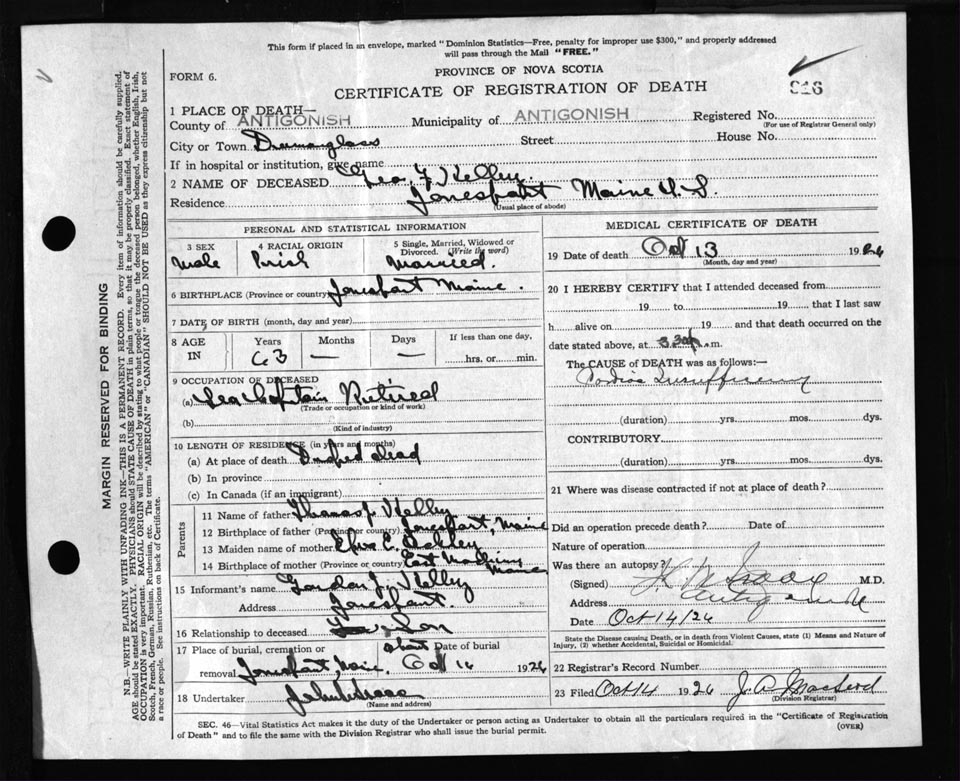 This form if placed in an envelope, marked "Dominion Statistics—Free, penalty for improper use $300," and properly addressed
will pass through the Mail "FREE."
PROVINCE OF NOVA SCOTIA
FORM 6.
CERTIFICATE OF REGISTRATION OF DEATH
1 PLACE OF DEATH—
County of ANTIGONISH Municipality of ANTIGONISH Registered No.
(For use of Registrar General only)
City or Town Street House No.
If in hospital or institution, give name
2 NAME OF DECEASED Geo. F Kelley.
Residence Jonesport Maine U.S.
(Usual place of abode)
PERSONAL AND STATISTICAL INFORMATION
3 SEX 4 RACIAL ORIGIN 5 Single, Married, Widowed or
Divorced. (Write the word)
Male Irish Married.
6 BIRTHPLACE (Province or country) Jonesport Maine.
7 DATE OF BIRTH (month, day and year)
8 AGE Years Months Days If less than one day,
IN 63 — — hrs. or min.
9 OCCUPATION OF DECEASED
(a) Sea Captain Retired
(Trade or occupation or kind of work)
(b)
(Kind of industry)
10 LENGTH OF RESIDENCE (in years and months)
(a) At place of death Droped dead
(b) In province
(c) In Canada (if an immigrant)
Parents
11 Name of father Thomas J Kelley
12 Birthplace of father (Province or country) Jonesport, Maine
13 Maiden name of mother
14 Birthplace of mother (Province or country) East Machias Maine
15 Informant's name Gordon J. Kelley
Address Jonesport.
16 Relationship to deceased Son
17 Place of burial, cremation or about Date of burial
removal Jonesport, Maine. Oct 16 1926
18 Undertaker
(Name and address)
MEDICAL CERTIFICATE OF DEATH
19 Date of death Oct 13 1926
(Month, day and year)
20 I HEREBY CERTIFY that I attended deceased from
19 to 19 that I last saw
h alive on 19 and that death occurred on the
date stated above, at 3.30 p.m.
The CAUSE OF DEATH was as follows:—
Cardiac Insufficiency
(duration) yrs. mos. dys.
CONTRIBUTORY
(duration) yrs. mos. dys.
21 Where was disease contracted if not at place of death?
Did an operation precede death? Date of
Nature of operation
Was there an autopsy?
(Signed) M.D.
Address Antigonish
Date Oct 14/26
State the Disease causing Death, or in death from Violent Causes, state (1) Means and Nature of
Injury, (2) whether Accidental, Suicidal or Homicidal.
22 Registrar's Record Number
23 Filed Oct 14 1926 J. A. MacLeod
(Division Registrar)
SEC. 46—Vital Statistics Act makes it the duty of the Undertaker or person acting as Undertaker to obtain all the particulars required in the "Certificate of Registration
of Death" and to file the same with the Division Registrar who shall issue the burial permit.
(OVER)
MARGIN RESERVED FOR BINDING
N.B.—WRITE PLAINLY WITH UNFADING INK—THIS IS A PERMANENT RECORD. Every item of information should be carefully supplied.
AGE should be stated EXACTLY. PHYSICIANS should STATE CAUSE OF DEATH in plain terms, so that it may be properly classified. Exact statement of
OCCUPATION is very important. RACIAL ORIGIN will be described by stating to what people or tongue the deceased person belonged, whether English, Irish,
Scotch, French, German, Russian, Ruthenian, etc. The terms "AMERICAN" or "CANADIAN" SHOULD NOT BE USED as they express citizenship but not
a race or people. See instructions on back of Certificate.